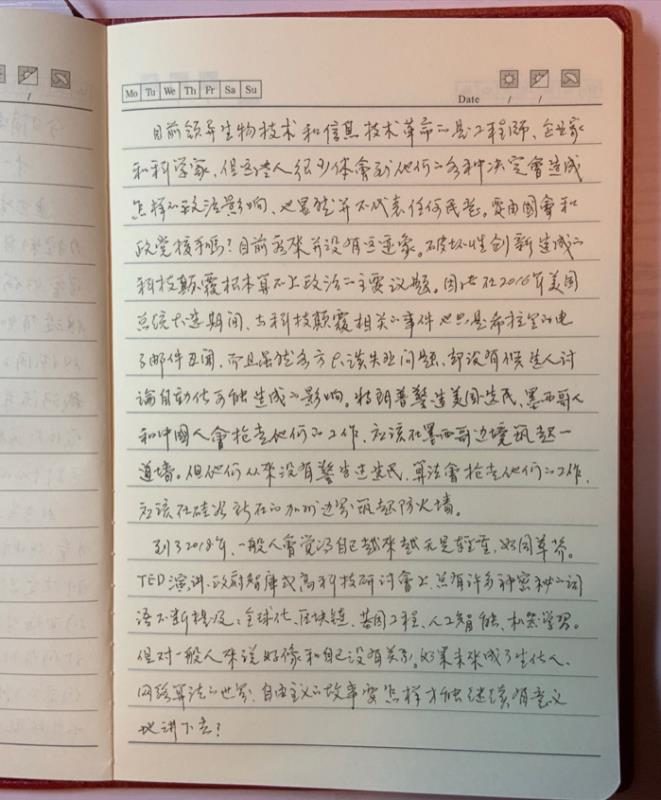 Mo Tu We Th Fr Sa Su
Date / /
目前領导生物技术和信息技术革命的是工程师、企业家
和科学家，但这些人很少体會到他们的各种决定會造成
怎样的政治影响，也显然并不代表任何民意。要由國會和
政党接手吗？目前看來并没有这迹象。破坏性创新造成的
科技颠覆根本算不上政治的主要议题。因此在2016年美国
总统大选期间，与科技颠覆相关的事件也只是希拉里的电
子邮件丑闻，而且虽然各方大谈失业问题，却没有候选人讨
論自動化可能造成的影响。特朗普警告美国选民，墨西哥人
和中國人會抢走他们的工作，应该在墨西哥边境筑起一
道墙。但他们从來没有警告过选民，算法會抢走他们的工作，
应该在硅谷所在的加州边界筑起防火墙。
到了2018年，一般人會觉得自己越來越无足轻重，如同草芥。
TED演讲、政府智庫或高科技研讨會上，总有许多神密的词
语不断提及：全球化、区块链、基因工程、人工智能、机器学习。
但对一般人來说好像和自己没有关系。如果未來成了生化人、
网络算法的世界，自由主义的故事要怎样才能继续有意义
地讲下去？